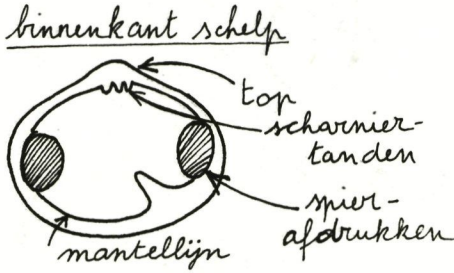 binnenkant schelp
top
scharnier-
tanden
spier-
afdrukken
mantellijn